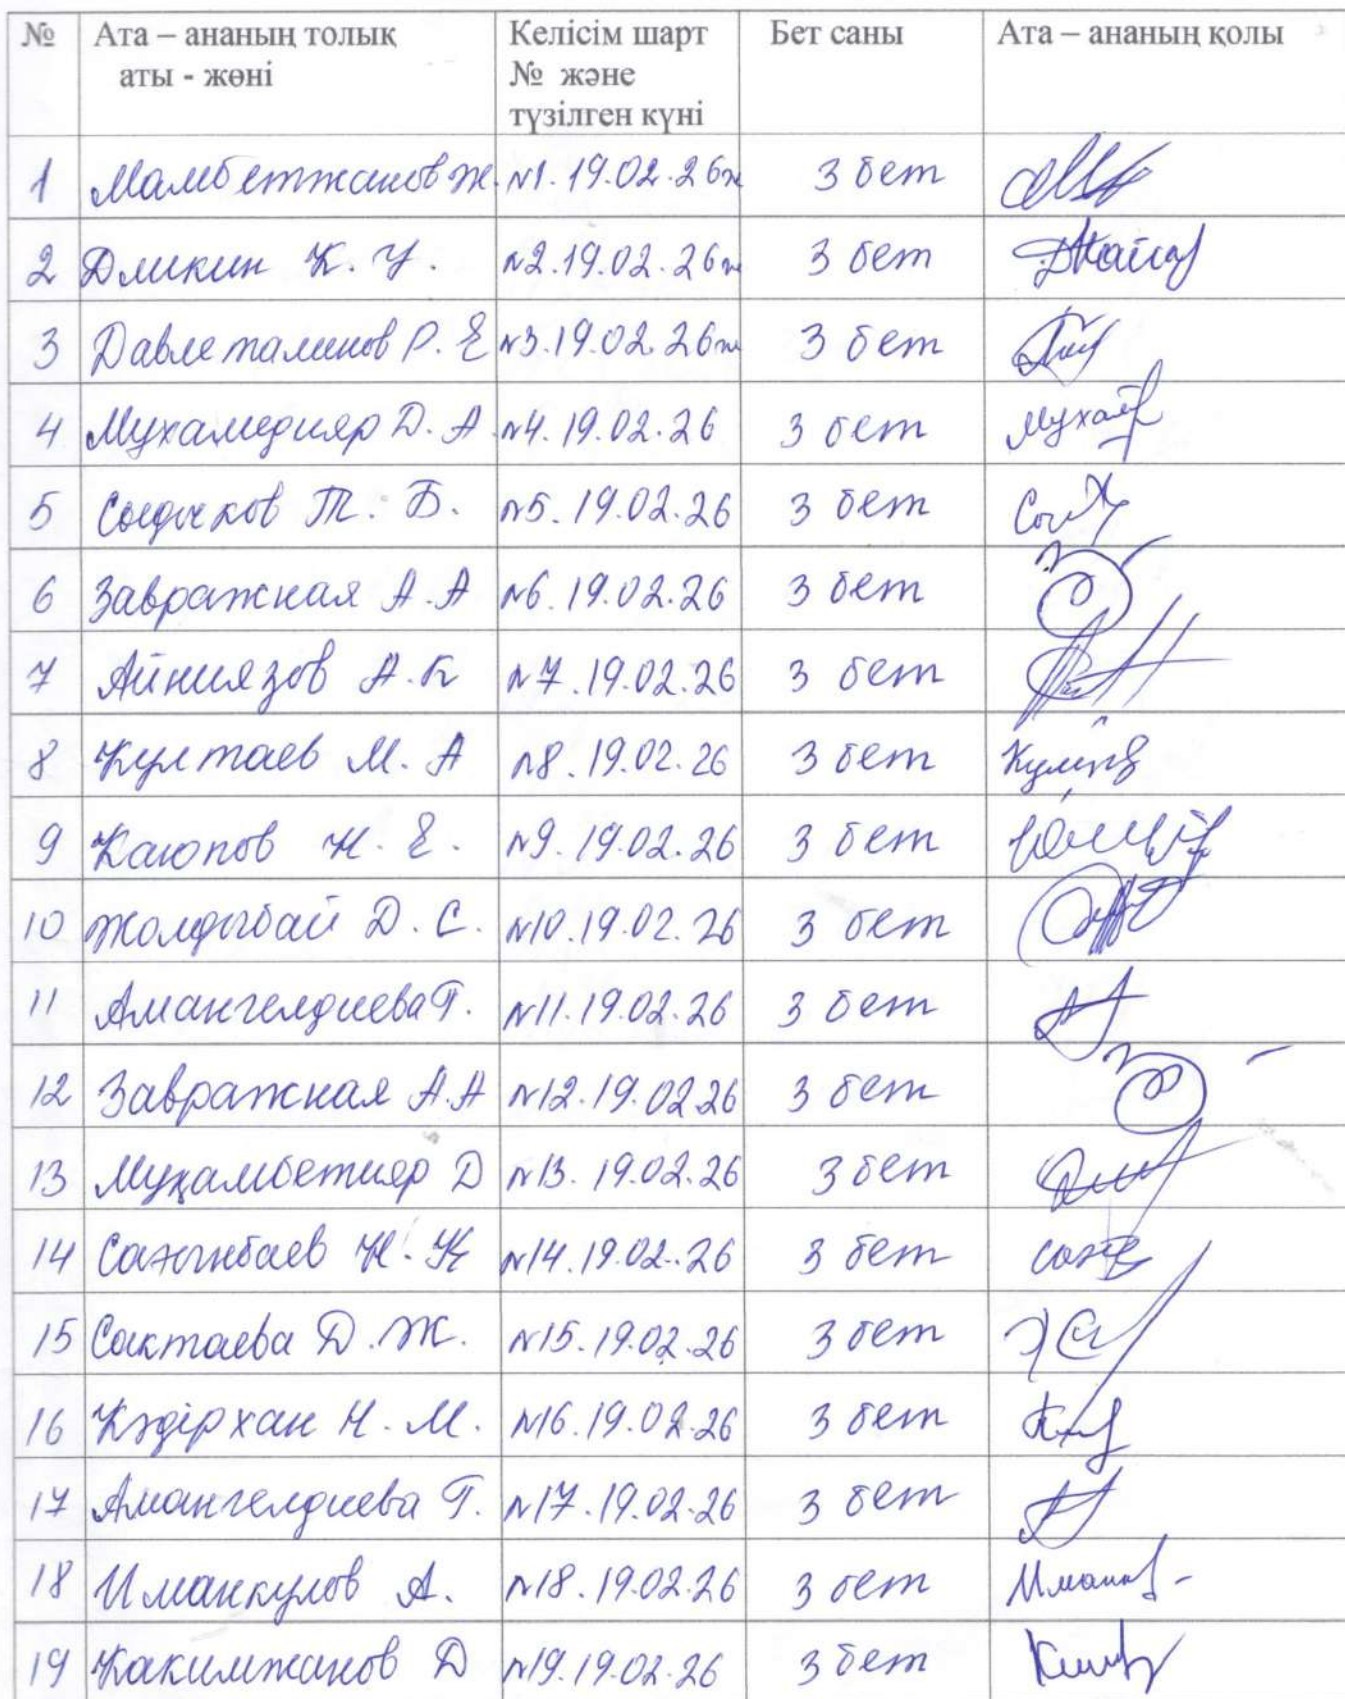 № Ата – ананың толық аты - жөні Келісім шарт № және түзілген күні Бет саны Ата – ананың қолы
1 Мамбетжанов Ж. №1. 19.02.26ж 3 бет
2 Дликин К. У. №2. 19.02.26ж 3 бет
3 Давлеталинов Р. Е №3. 19.02.26ж 3 бет
4 Мухамедияр Д. А. №4. 19.02.26 3 бет
5 Сыдыков Т. Б. №5. 19.02.26 3 бет
6 Завражная А. А №6. 19.02.26 3 бет
7 Айниязов А. К №7. 19.02.26 3 бет
8 Култаев М. А №8. 19.02.26 3 бет
9 Каюпов Н. Е. №9. 19.02.26 3 бет
10 Жолдыбай Д. С. №10. 19.02.26 3 бет
11 Амангелдиева Г. №11. 19.02.26 3 бет
12 Завражная А. А №12. 19.02.26 3 бет
13 Мұқамбетияр Д №13. 19.02.26 3 бет
14 №14. 19.02.26 3 бет
15 Сактаева Д. Ж. №15. 19.02.26 3 бет
16 Кәдірхан Н. М. №16. 19.02.26 3 бет
17 Амангелдиева Г. №17. 19.02.26 3 бет
18 Иманкулов А. №18. 19.02.26 3 бет
19 Какимжанов Д №19. 19.02.26 3 бет